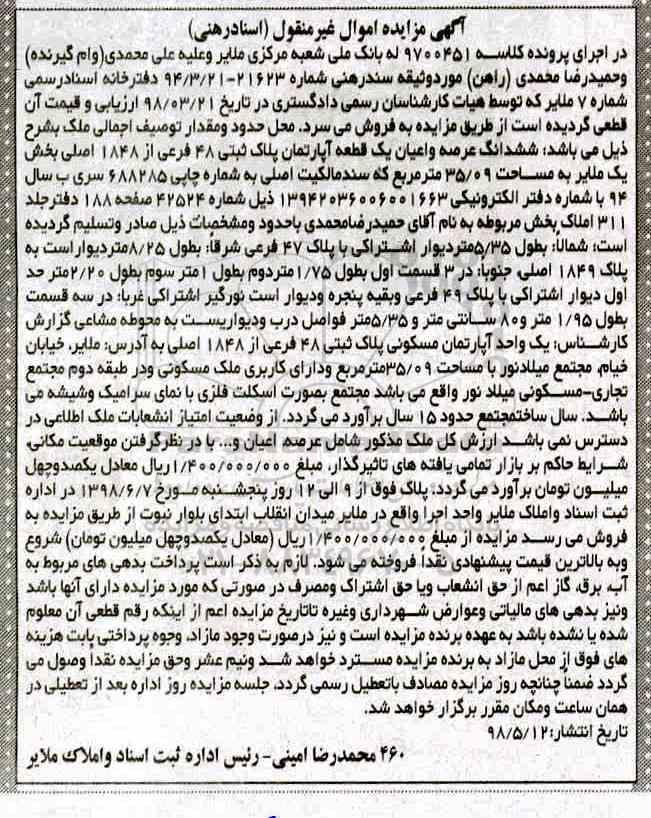 آگهی مزایده اموال غیرمنقول (اسنادرهنی)
در اجرای پرونده کلاسه ۹۷۰۰۴۵۱ له بانک ملی شعبه مرکزی ملایر وعلیه علی محمدی(وام گیرنده)
وحمیدرضا محمدی (راهن) موردوثیقه سندرهنی شماره ۲۱۶۲۳-۹۴/۳/۲۱ دفترخانه اسنادرسمی
شماره ۷ ملایر که توسط هیات کارشناسان رسمی دادگستری در تاریخ ۹۸/۰۳/۲۱ ارزیابی و قیمت آن
قطعی گردیده است از طریق مزایده به فروش می سرد. محل حدود ومقدار توصیف اجمالی ملک بشرح
ذیل می باشد: ششدانگ عرصه واعیان یک قطعه آپارتمان پلاک ثبتی ۴۸ فرعی از ۱۸۴۸ اصلی بخش
یک ملایر به مساحت ۳۵/۰۹ مترمربع که سندمالکیت اصلی به شماره چاپی ۶۸۸۲۸۵ سری ب سال
۹۴ با شماره دفتر الکترونیکی ۱۳۹۴۲۰۳۶۰۰۶۰۰۱۶۶۳ ذیل شماره ۴۲۵۲۴ صفحه ۱۸۸ دفترجلد
۳۱۱ املاک بخش مربوطه به نام آقای حمیدرضامحمدی باحدود ومشخصات ذیل صادر وتسلیم گردیده
است: شمالاً: بطول ۵/۳۵متردیوار اشتراکی با پلاک ۴۷ فرعی شرقاً: بطول ۸/۲۵متردیواراست به
پلاک ۱۸۴۹ اصلی، جنوباً: در ۳ قسمت اول بطول ۱/۷۵متردوم بطول ۱متر سوم بطول ۲/۲۰متر حد
اول دیوار اشتراکی با پلاک ۴۹ فرعی وبقیه پنجره ودیوار است نورگیر اشتراکی غرباً: در سه قسمت
بطول ۱/۹۵ متر و۸۰ سانتی متر و ۵/۳۵متر فواصل درب ودیواریست به محوطه مشاعی گزارش
کارشناس: یک واحد آپارتمان مسکونی پلاک ثبتی ۴۸ فرعی از ۱۸۴۸ اصلی به آدرس: ملایر، خیابان
خیام، مجتمع میلادنور با مساحت ۳۵/۰۹مترمربع ودارای کاربری ملک مسکونی ودر طبقه دوم مجتمع
تجاری-مسکونی میلاد نور واقع می باشد مجتمع بصورت اسکلت فلزی با نمای سرامیک وشیشه می
باشد. سال ساختمجتمع حدود ۱۵ سال برآورد می گردد. از وضعیت امتیاز انشعابات ملک اطلاعی در
دسترس نمی باشد ارزش کل ملک مذکور شامل عرصه، اعیان و... با در نظرگرفتن موقعیت مکانی،
شرایط حاکم بر بازار تمامی یافته های تاثیرگذار، مبلغ ۱/۴۰۰/۰۰۰/۰۰۰ریال معادل یکصدوچهل
میلیون تومان برآورد می گردد: پلاک فوق از ۹ الی ۱۲ روز پنجشنبه مورخ ۱۳۹۸/۶/۷ در اداره
ثبت اسناد واملاک ملایر واحد اجرا واقع در ملایر میدان انقلاب ابتدای بلوار نبوت از طریق مزایده به
فروش می رسد مزایده از مبلغ ۱/۴۰۰/۰۰۰/۰۰۰ریال (معادل یکصدوچهل میلیون تومان) شروع
وبه بالاترین قیمت پیشنهادی نقداً فروخته می شود. لازم به ذکر است پرداخت بدهی های مربوط به
آب، برق، گاز اعم از حق انشعاب ویا حق اشتراک ومصرف در صورتی که مورد مزایده دارای آنها باشد
ونیز بدهی های مالیاتی وعوارض شهرداری وغیره تاتاریخ مزایده اعم از اینکه رقم قطعی آن معلوم
شده یا نشده باشد به عهده برنده مزایده است و نیز درصورت وجود مازاد، وجوه پرداختی بابت هزینه
های فوق از محل مازاد به برنده مزایده مسترد خواهد شد ونیم عشر وحق مزایده نقداً وصول می
گردد ضمناً چنانچه روز مزایده مصادف باتعطیل رسمی گردد، جلسه مزایده روز اداره بعد از تعطیلی در
همان ساعت ومکان مقرر برگزار خواهد شد.
تاریخ انتشار:۹۸/۵/۱۲
۴۶۰ محمدرضا امینی- رئیس اداره ثبت اسناد واملاک ملایر